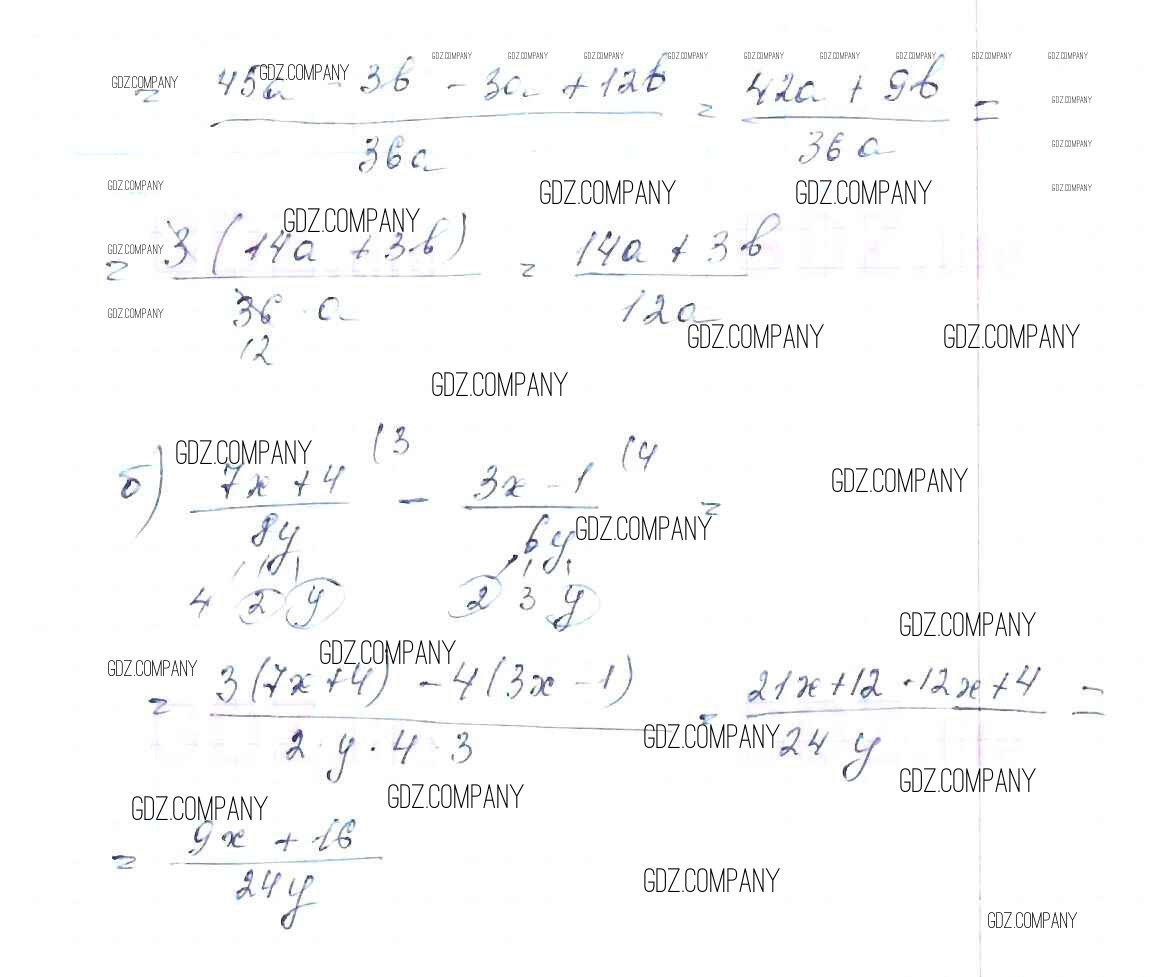 GDZ.COMPANY GDZ.COMPANY GDZ.COMPANY GDZ.COMPANY GDZ.COMPANY GDZ.COMPANY GDZ.COMPANY GDZ.COMPANY GDZ.COMPANY
GDZ.COMPANY GDZ.COMPANY
= 45a - 3b - 3a + 12b = 42a + 9b =
GDZ.COMPANY
36a 36a
GDZ.COMPANY
GDZ.COMPANY GDZ.COMPANY GDZ.COMPANY GDZ.COMPANY
GDZ.COMPANY
GDZ.COMPANY
= 3 (14a + 3b) = 14a + 3b
GDZ.COMPANY
36 · a 12a
12
GDZ.COMPANY GDZ.COMPANY
GDZ.COMPANY
(3 (4
GDZ.COMPANY GDZ.COMPANY
б) 7x + 4 - 3x - 1 =
8y 6y
GDZ.COMPANY
4 2 y 2 3 y
GDZ.COMPANY
GDZ.COMPANY GDZ.COMPANY
= 3(7x+4) - 4(3x - 1) = 21x+12 - 12x+4 =
2 · y · 4 · 3 24 y
GDZ.COMPANY
GDZ.COMPANY GDZ.COMPANY GDZ.COMPANY
= 9x + 16
24y
GDZ.COMPANY
GDZ.COMPANY